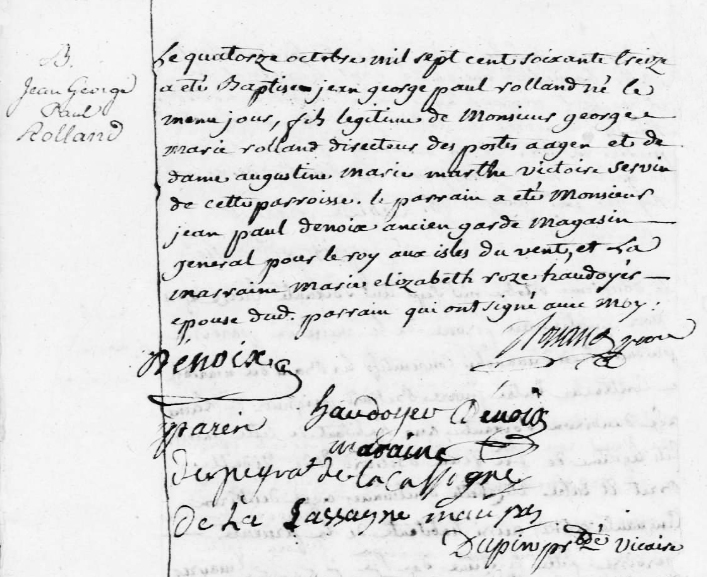 B.
Jean George
Paul
Rolland
Le quatorze octobre mil sept cent soixante treize
a eté Baptisé jean george paul rolland né le
meme jour, fils legitime de Monsieur george
marie rolland directeur des postes a agen et de
dame augustine marie marthe victoire servin
de cette parroisse. le parrain a eté Monsieur
jean paul denoix ancien garde Magasin
general pour le roy aux isles du vent, et La
marraine marie elizabeth roze haudoyér
epouse dud. parrain qui ont signé avec Moy.
Denoix
parein haudoyer Denoix
maraine
de la Cassigne
de La Lassagne
Dupin vicaire